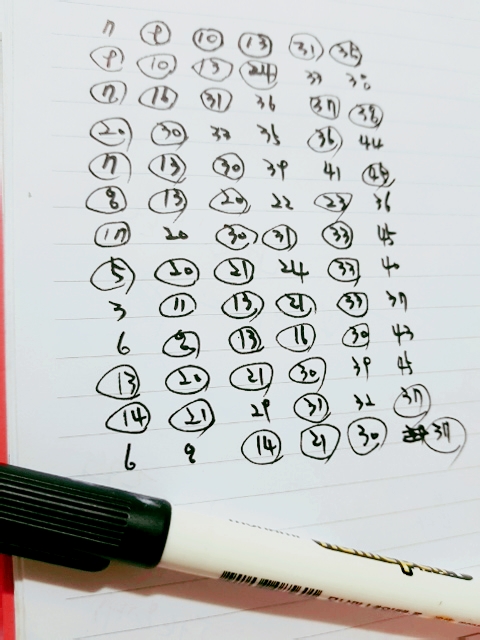 7 8 10 13 31 35
8 10 13 24 33 38
7 16 31 36 37 38
20 30 33 35 36 44
7 13 30 39 41 45
8 13 20 22 23 36
17 20 30 31 33 45
5 20 21 24 33 40
3 11 13 21 33 37
6 8 13 16 30 43
13 20 21 30 39 45
14 21 29 31 32 37
6 8 14 21 30 37